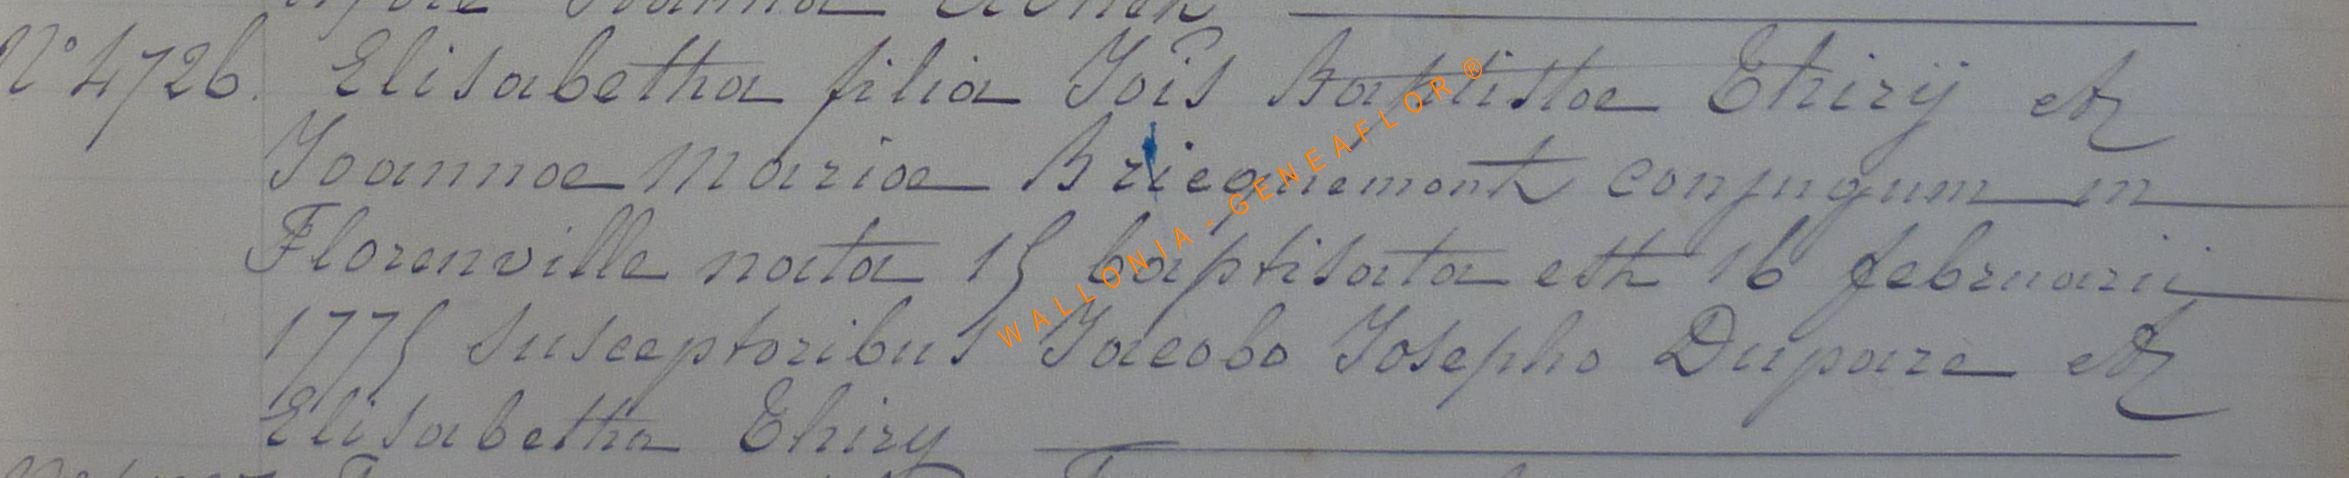 N° 4726. Elisabetha filia Jois Baptistae Thiry et
Joannae Mariae Briequemont conjugum in
Florenville nata 15 baptisata est 16 februarii
1775 susceptoribus Jacobo Josepho Duparc et
Elisabetha Thiry
WALLONIA - GENEAFLOR ®